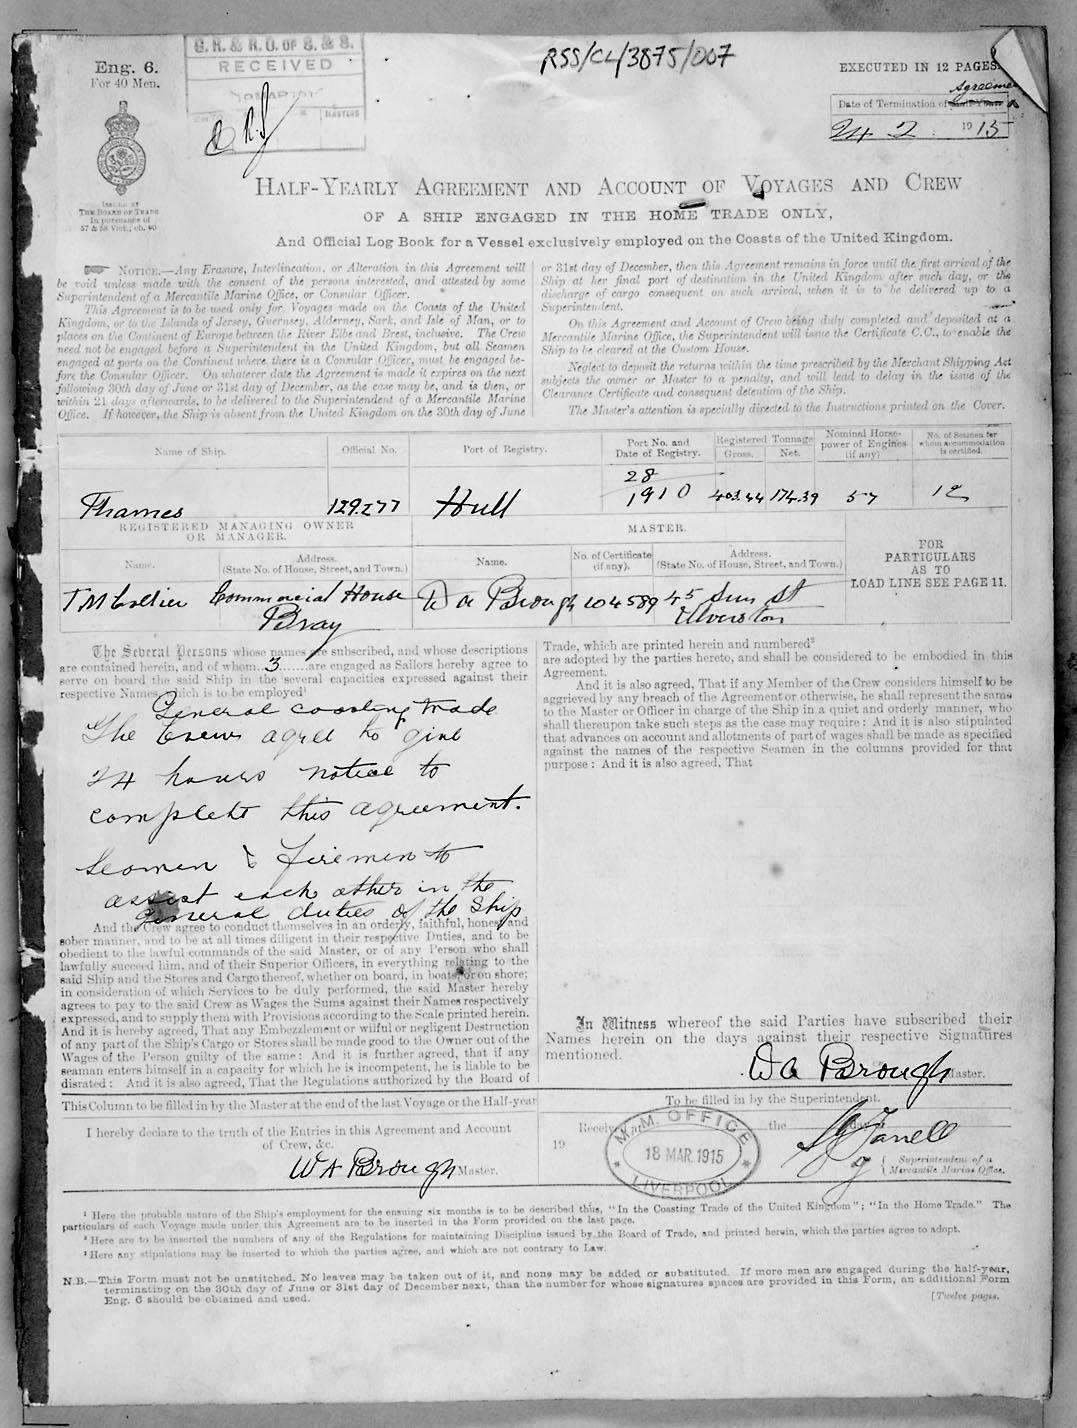 RSS/CL/3875/007
Eng. 6.
For 40 Men.
G. R. & R. O. OF S. & S.
RECEIVED
MASTERS
EXECUTED IN 12 PAGES.
Agreement
Date of Termination of
24 2 1915
ISSUED BY
THE BOARD OF TRADE
In pursuance of
57 & 58 Vict., ch. 60
HALF-YEARLY AGREEMENT AND ACCOUNT OF VOYAGES AND CREW
OF A SHIP ENGAGED IN THE HOME TRADE ONLY,
And Official Log Book for a Vessel exclusively employed on the Coasts of the United Kingdom.
NOTICE.—Any Erasure, Interlineation, or Alteration in this Agreement will
be void unless made with the consent of the persons interested, and attested by some
Superintendent of a Mercantile Marine Office, or Consular Officer.
This Agreement is to be used only for Voyages made on the Coasts of the United
Kingdom, or to the Islands of Jersey, Guernsey, Alderney, Sark, and Isle of Man, or to
places on the Continent of Europe between the River Elbe and Brest, inclusive. The Crew
need not be engaged before a Superintendent in the United Kingdom, but all Seamen
engaged at ports on the Continent where there is a Consular Officer, must be engaged be-
fore the Consular Officer. On whatever date the Agreement is made it expires on the next
following 30th day of June or 31st day of December, as the case may be, and is then, or
within 21 days afterwards, to be delivered to the Superintendent of a Mercantile Marine
Office. If however, the Ship is absent from the United Kingdom on the 30th day of June
or 31st day of December, then this Agreement remains in force until the first arrival of the
Ship at her final port of destination in the United Kingdom after such day, or the
discharge of cargo consequent on such arrival, when it is to be delivered up to a
Superintendent.
On this Agreement and Account of Crew being duly completed and deposited at a
Mercantile Marine Office, the Superintendent will issue the Certificate C.C., to enable the
Ship to be cleared at the Custom House.
Neglect to deposit the returns within the time prescribed by the Merchant Shipping Act
subjects the owner or Master to a penalty, and will lead to delay in the issue of the
Clearance Certificate and consequent detention of the Ship.
The Master's attention is specially directed to the Instructions printed on the Cover.
Name of Ship. Official No. Port of Registry. Port No. and Date of Registry. Registered Tonnage Gross. Net. Nominal Horse-power of Engines (if any) No. of Seamen for whom accommodation is certified.
Thames 129.277 Hull 28/1910 403.44 174.39 57 12
REGISTERED MANAGING OWNER
OR MANAGER.
MASTER.
FOR
PARTICULARS
AS TO
LOAD LINE SEE PAGE 11.
Name. Address. (State No. of House, Street, and Town.) Name. No. of Certificate (if any). Address. (State No. of House, Street, and Town.)
T M Collier Commercial House W A Brough 104589 45 Sun St
Bray Ulverston
The Several Persons whose names are subscribed, and whose descriptions
are contained herein, and of whom 3 are engaged as Sailors hereby agree to
serve on board the said Ship in the several capacities expressed against their
respective Names, which is to be employed¹
General coasting trade
The Crews agree to give
24 hours notice to
complete this agreement.
Seamen & firemen to
assist each other in the
general duties of the Ship
And the Crew agree to conduct themselves in an orderly, faithful, honest and
sober manner, and to be at all times diligent in their respective Duties, and to be
obedient to the lawful commands of the said Master, or of any Person who shall
lawfully succeed him, and of their Superior Officers, in everything relating to the
said Ship and the Stores and Cargo thereof, whether on board, in boats, or on shore;
in consideration of which Services to be duly performed, the said Master hereby
agrees to pay to the said Crew as Wages the Sums against their Names respectively
expressed, and to supply them with Provisions according to the Scale printed herein.
And it is hereby agreed, That any Embezzlement or wilful or negligent Destruction
of any part of the Ship's Cargo or Stores shall be made good to the Owner out of the
Wages of the Person guilty of the same: And it is further agreed, that if any
seaman enters himself in a capacity for which he is incompetent, he is liable to be
disrated: And it is also agreed, That the Regulations authorized by the Board of
Trade, which are printed herein and numbered²
are adopted by the parties hereto, and shall be considered to be embodied in this
Agreement.
And it is also agreed, That if any Member of the Crew considers himself to be
aggrieved by any breach of the Agreement or otherwise, he shall represent the same
to the Master or Officer in charge of the Ship in a quiet and orderly manner, who
shall thereupon take such steps as the case may require: And it is also stipulated
that advances on account and allotments of part of wages shall be made as specified
against the names of the respective Seamen in the columns provided for that
purpose: And it is also agreed, That
In Witness whereof the said Parties have subscribed their
Names herein on the days against their respective Signatures
mentioned.
W A Brough Master.
This Column to be filled in by the Master at the end of the last Voyage or the Half-year
I hereby declare to the truth of the Entries in this Agreement and Account
of Crew, &c.
W A Brough Master.
To be filled in by the Superintendent.
the day
19
M. M. OFFICE
18 MAR. 1915
LIVERPOOL
Superintendent of a
Mercantile Marine Office.
¹ Here the probable nature of the Ship's employment for the ensuing six months is to be described thus, "In the Coasting Trade of the United Kingdom"; "In the Home Trade." The
particulars of each Voyage made under this Agreement are to be inserted in the Form provided on the last page.
² Here are to be inserted the numbers of any of the Regulations for maintaining Discipline issued by the Board of Trade, and printed herein, which the parties agree to adopt.
³ Here any stipulations may be inserted to which the parties agree, and which are not contrary to Law.
N.B.—This Form must not be unstitched. No leaves may be taken out of it, and none may be added or substituted. If more men are engaged during the half-year,
terminating on the 30th day of June or 31st day of December next, than the number for whose signatures spaces are provided in this Form, an additional Form
Eng. 6 should be obtained and used.
[Twelve pages.